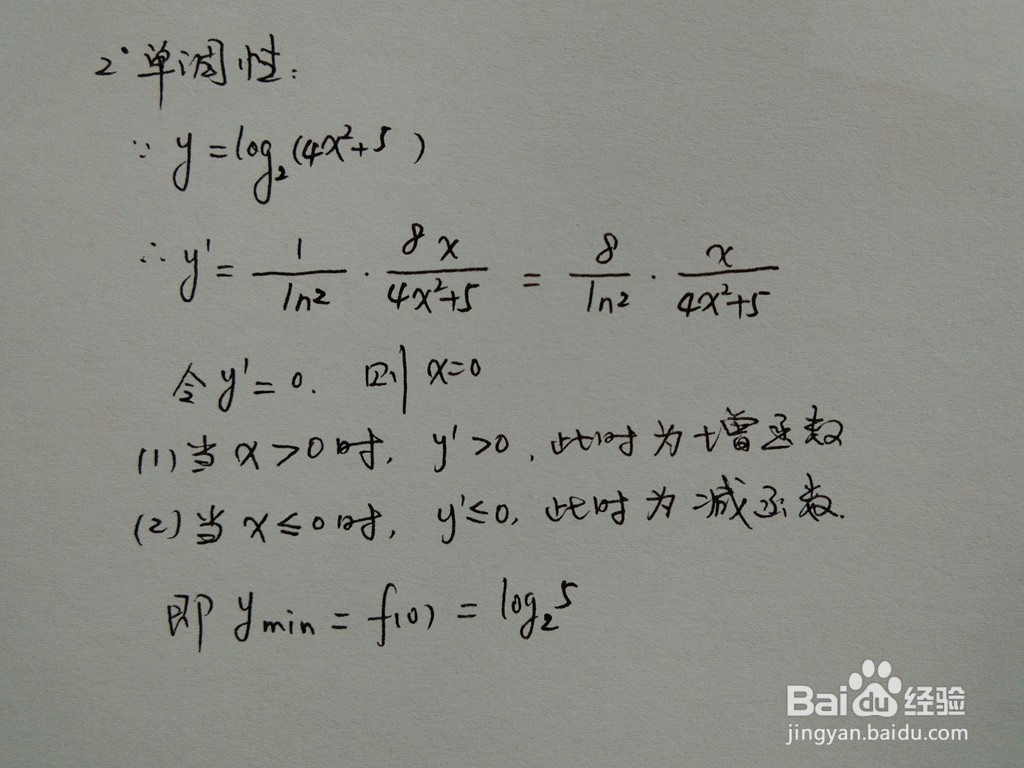 2° 单调性:
∵ y=log₂(4x²+5)
∴ y'= 1/ln2 · 8x/(4x²+5) = 8/ln2 · x/(4x²+5)
令 y'=0. 则 x=0
(1) 当 x>0 时, y'>0, 此时为增函数
(2) 当 x≤0 时, y'≤0, 此时为减函数.
即 ymin = f(0) = log₂5
Baidu 经验
jingyan.baidu.com